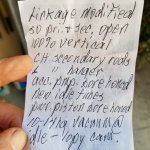 Linkage modified
so pri. & sec. open
100 to vertical
CH. secondary rods
& " hanger
acc. pmp. bore honed
new idle tubes
pwr. piston bore honed
10-14hg vacuum @
idle - copy card.